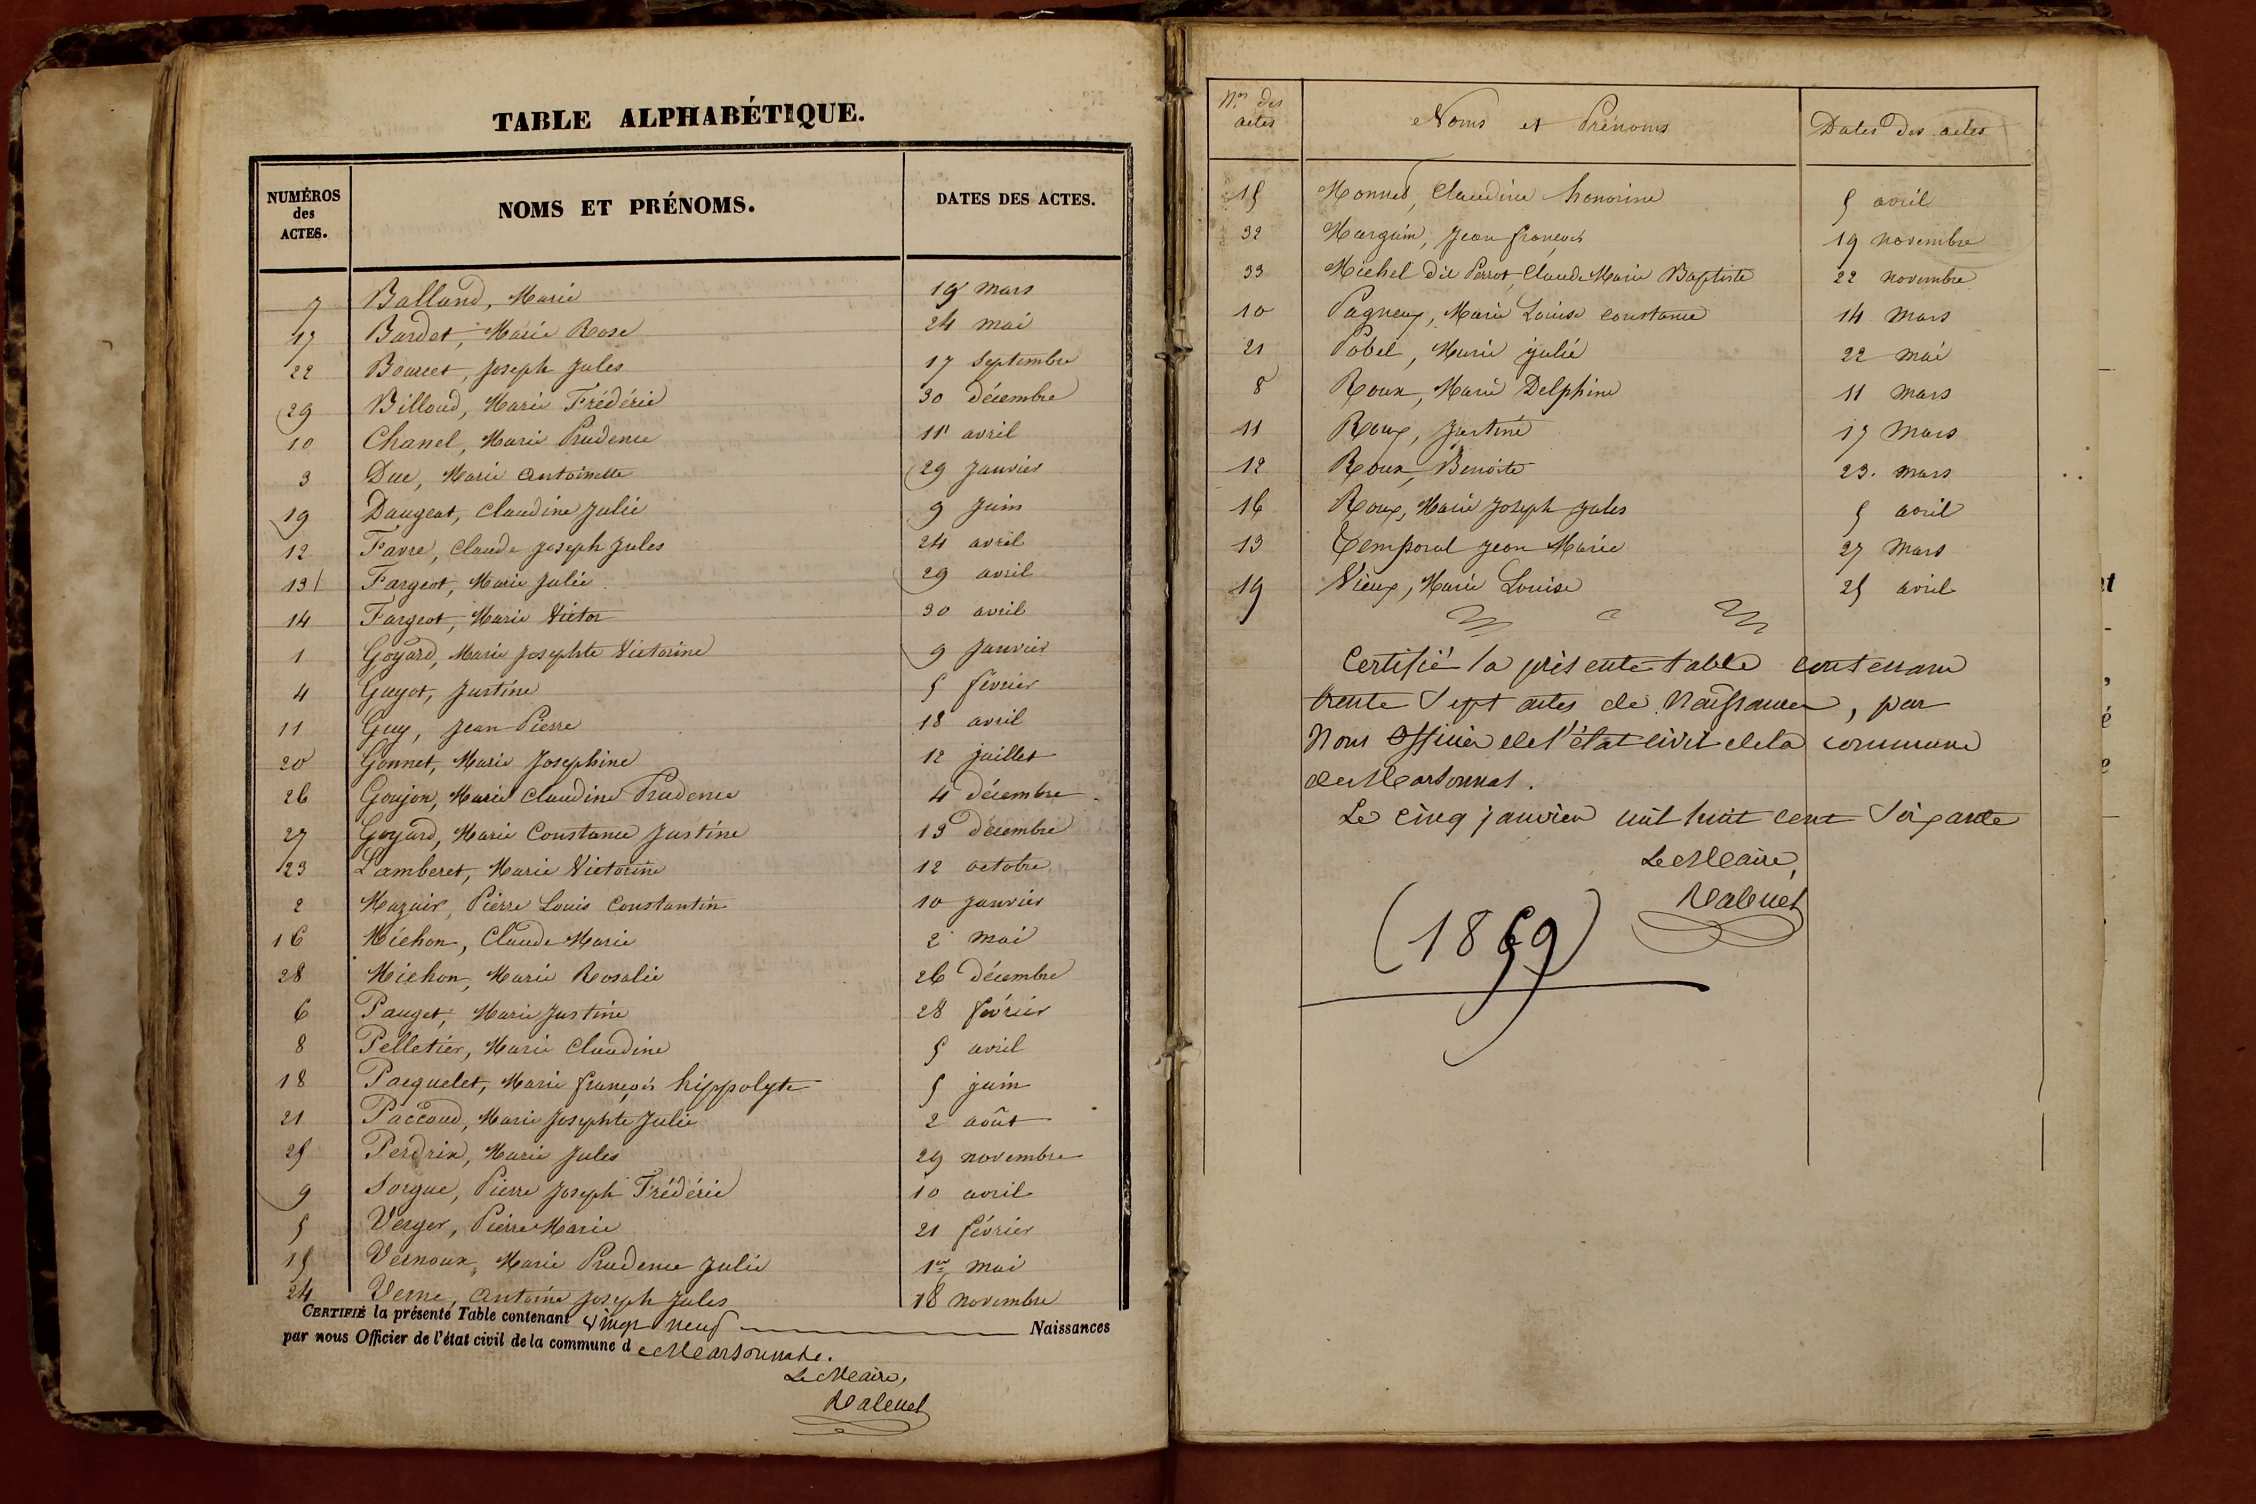 TABLE ALPHABÉTIQUE.
NUMÉROS des ACTES. NOMS ET PRÉNOMS. DATES DES ACTES.
7 Balland, Marie 19 mars
17 Bardet, Marie Rose 24 mai
22 Bourcet, Joseph Jules 17 Septembre
29 Billoud, Marie Frédéric 30 décembre
10 Chanel, Marie Prudence 11 avril
3 Duc, Marie Antoinette 29 Janvier
19 Daugeat, Claudine Julie 9 Juin
12 Favre, Claude Joseph Jules 24 avril
13 Fargeot, Marie Julie 29 avril
14 Fargeot, Marie Victor 30 avril
1 Goyard, Marie Josephte Victorine 9 Janvier
4 Guyot, Justine 5 février
11 Guy, Jean Pierre 18 avril
20 Gonnet, Marie Josephine 12 juillet
26 Goujon, Marie Claudine Prudence 4 décembre
27 Goyard, Marie Constance Justine 13 décembre
23 Lamberet, Marie Victorine 12 octobre
2 Mazuir, Pierre Louis Constantin 10 Janvier
16 Michon, Claude Marie 2 mai
28 Michon, Marie Rosalie 26 décembre
6 Pauget, Marie Justine 28 février
8 Pelletier, Marie Claudine 5 avril
18 Pacquelet, Marie françois hippolyte 5 juin
21 Paccoud, Marie Josephte Julie 2 août
25 Perdrix, Marie Jules 29 novembre
9 Sorgue, Pierre Joseph Frédéric 10 avril
5 Verger, Pierre Marie 21 février
15 Vernoux, Marie Prudence Julie 1er mai
24 Verne, Antoine Joseph Jules 18 novembre
CERTIFIÉ la présente Table contenant vingt neuf Naissances
par nous Officier de l'état civil de la commune de Marsonnas.
Le Maire,
Nos des actes Noms et Prénoms Dates des actes
15 Monnet, Claudine honorine 5 avril
32 Marguin, Jean françois 19 novembre
33 Michel dit Perrot, Claude Marie Baptiste 22 novembre
10 Pagneux, Marie Louise Constance 14 Mars
21 Pobel, Marie julie 22 mai
8 Roux, Marie Delphine 11 mars
11 Roux, Justine 17 Mars
12 Roux, Benoite 23. mars
16 Roux, Marie Joseph Jules 5 avril
13 Temporal Jean Marie 27 Mars
19 Vieux, Marie Louise 25 avril
Certifié la présente table contenant
trente Sept actes de Naissance, par
Nous Officier de l'état civil de la commune
de Marsonnas.
Le cinq janvier mil huit cent Soixante
Le Maire,
(1859)